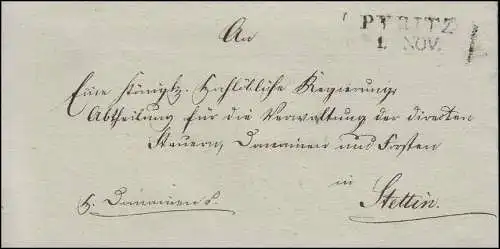 PYRITZ
1 NOV.
An
Eine Königl. Hochlöbliche Regierungs
Abtheilung für die Verwaltung der directen
Steuern, Domainen und Forsten
in
Stettin.
H. Domainen S.